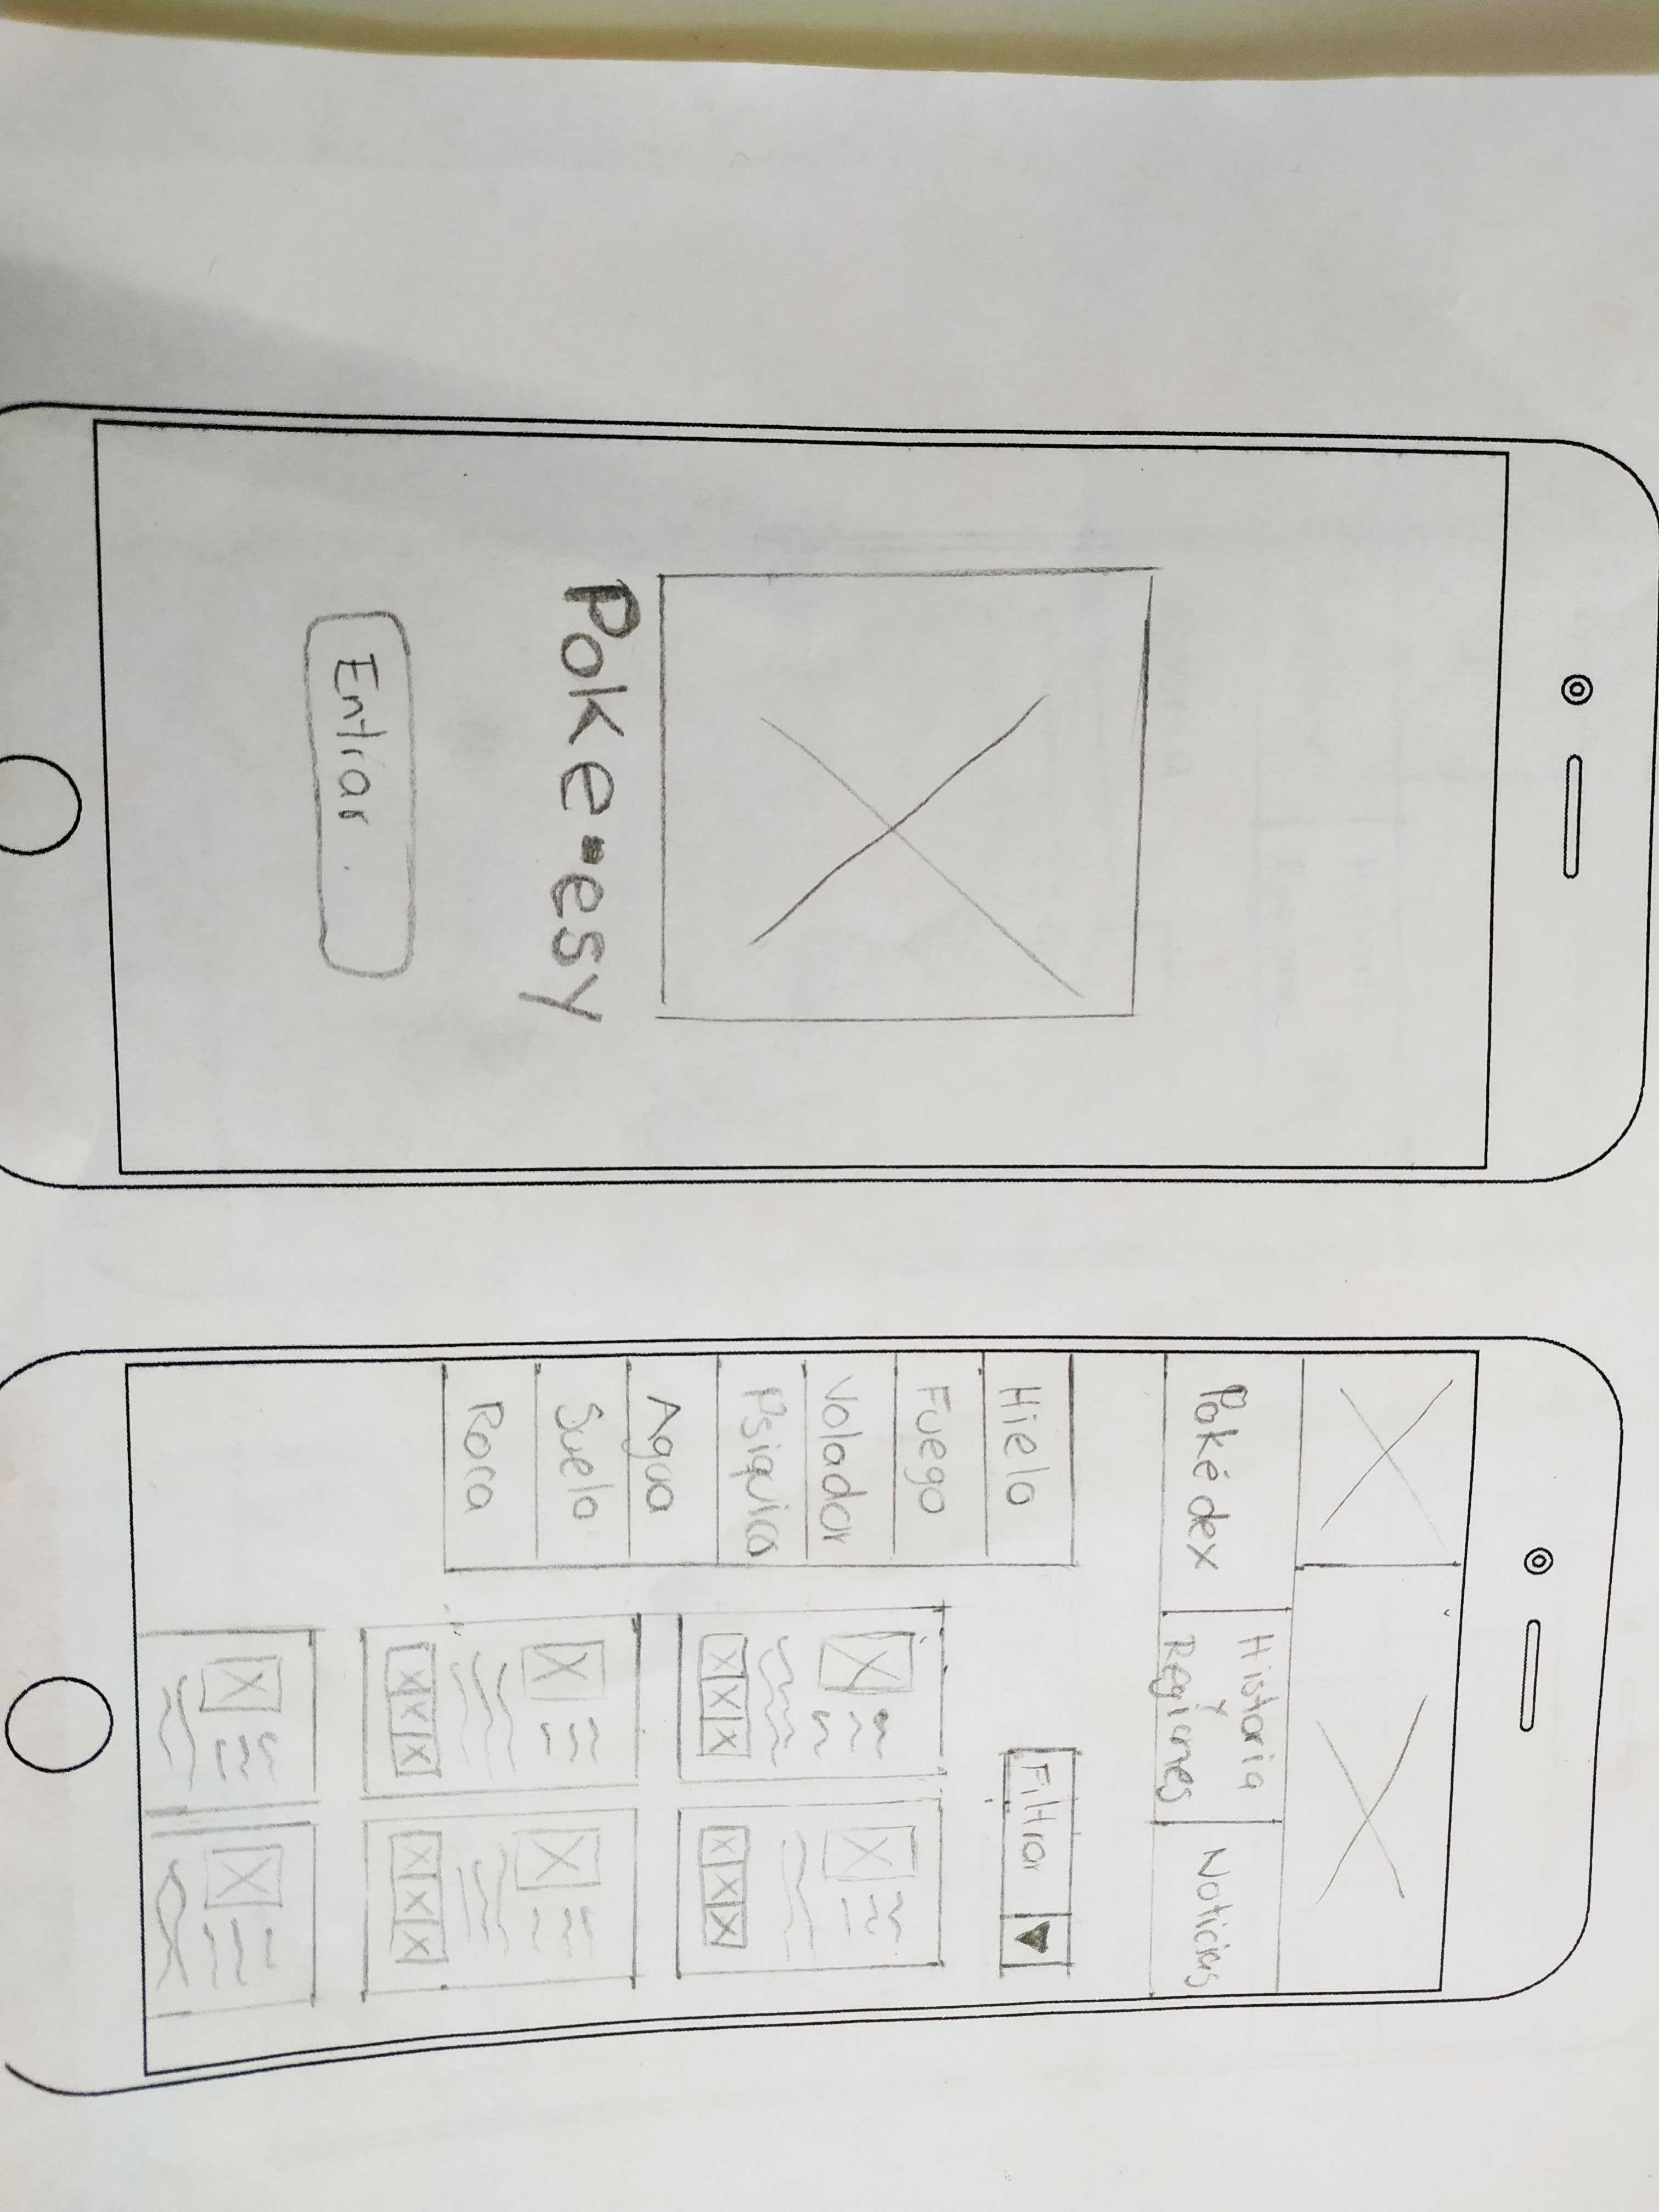 Poke-esy
Entrar
Pokédex
Historia
y
Regiones
Noticias
Filtrar
Hielo
Fuego
Volador
Psiquico
Agua
Suelo
Roca